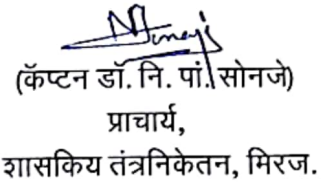 (कॅप्टन डॉ. नि. पां. सोनजे)
प्राचार्य,
शासकिय तंत्रनिकेतन, मिरज.